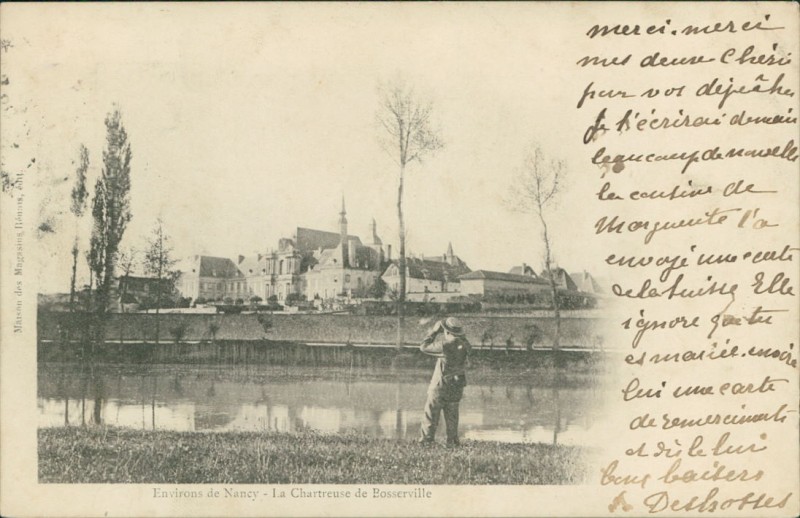 merci, merci
mes deux Chéri
pour vos dépêches
Je t'écrirai demain
beaucoup de nouvelle
la cousine de
Marguerite t'a
envoyé une carte
de la Suisse Elle
ignore que tu
es mariée. envoie
lui une carte
de remerciments
et dis le lui
bons baisers
Desbosses
Maison des Magasins Réunis, édit.
Environs de Nancy - La Chartreuse de Bosserville